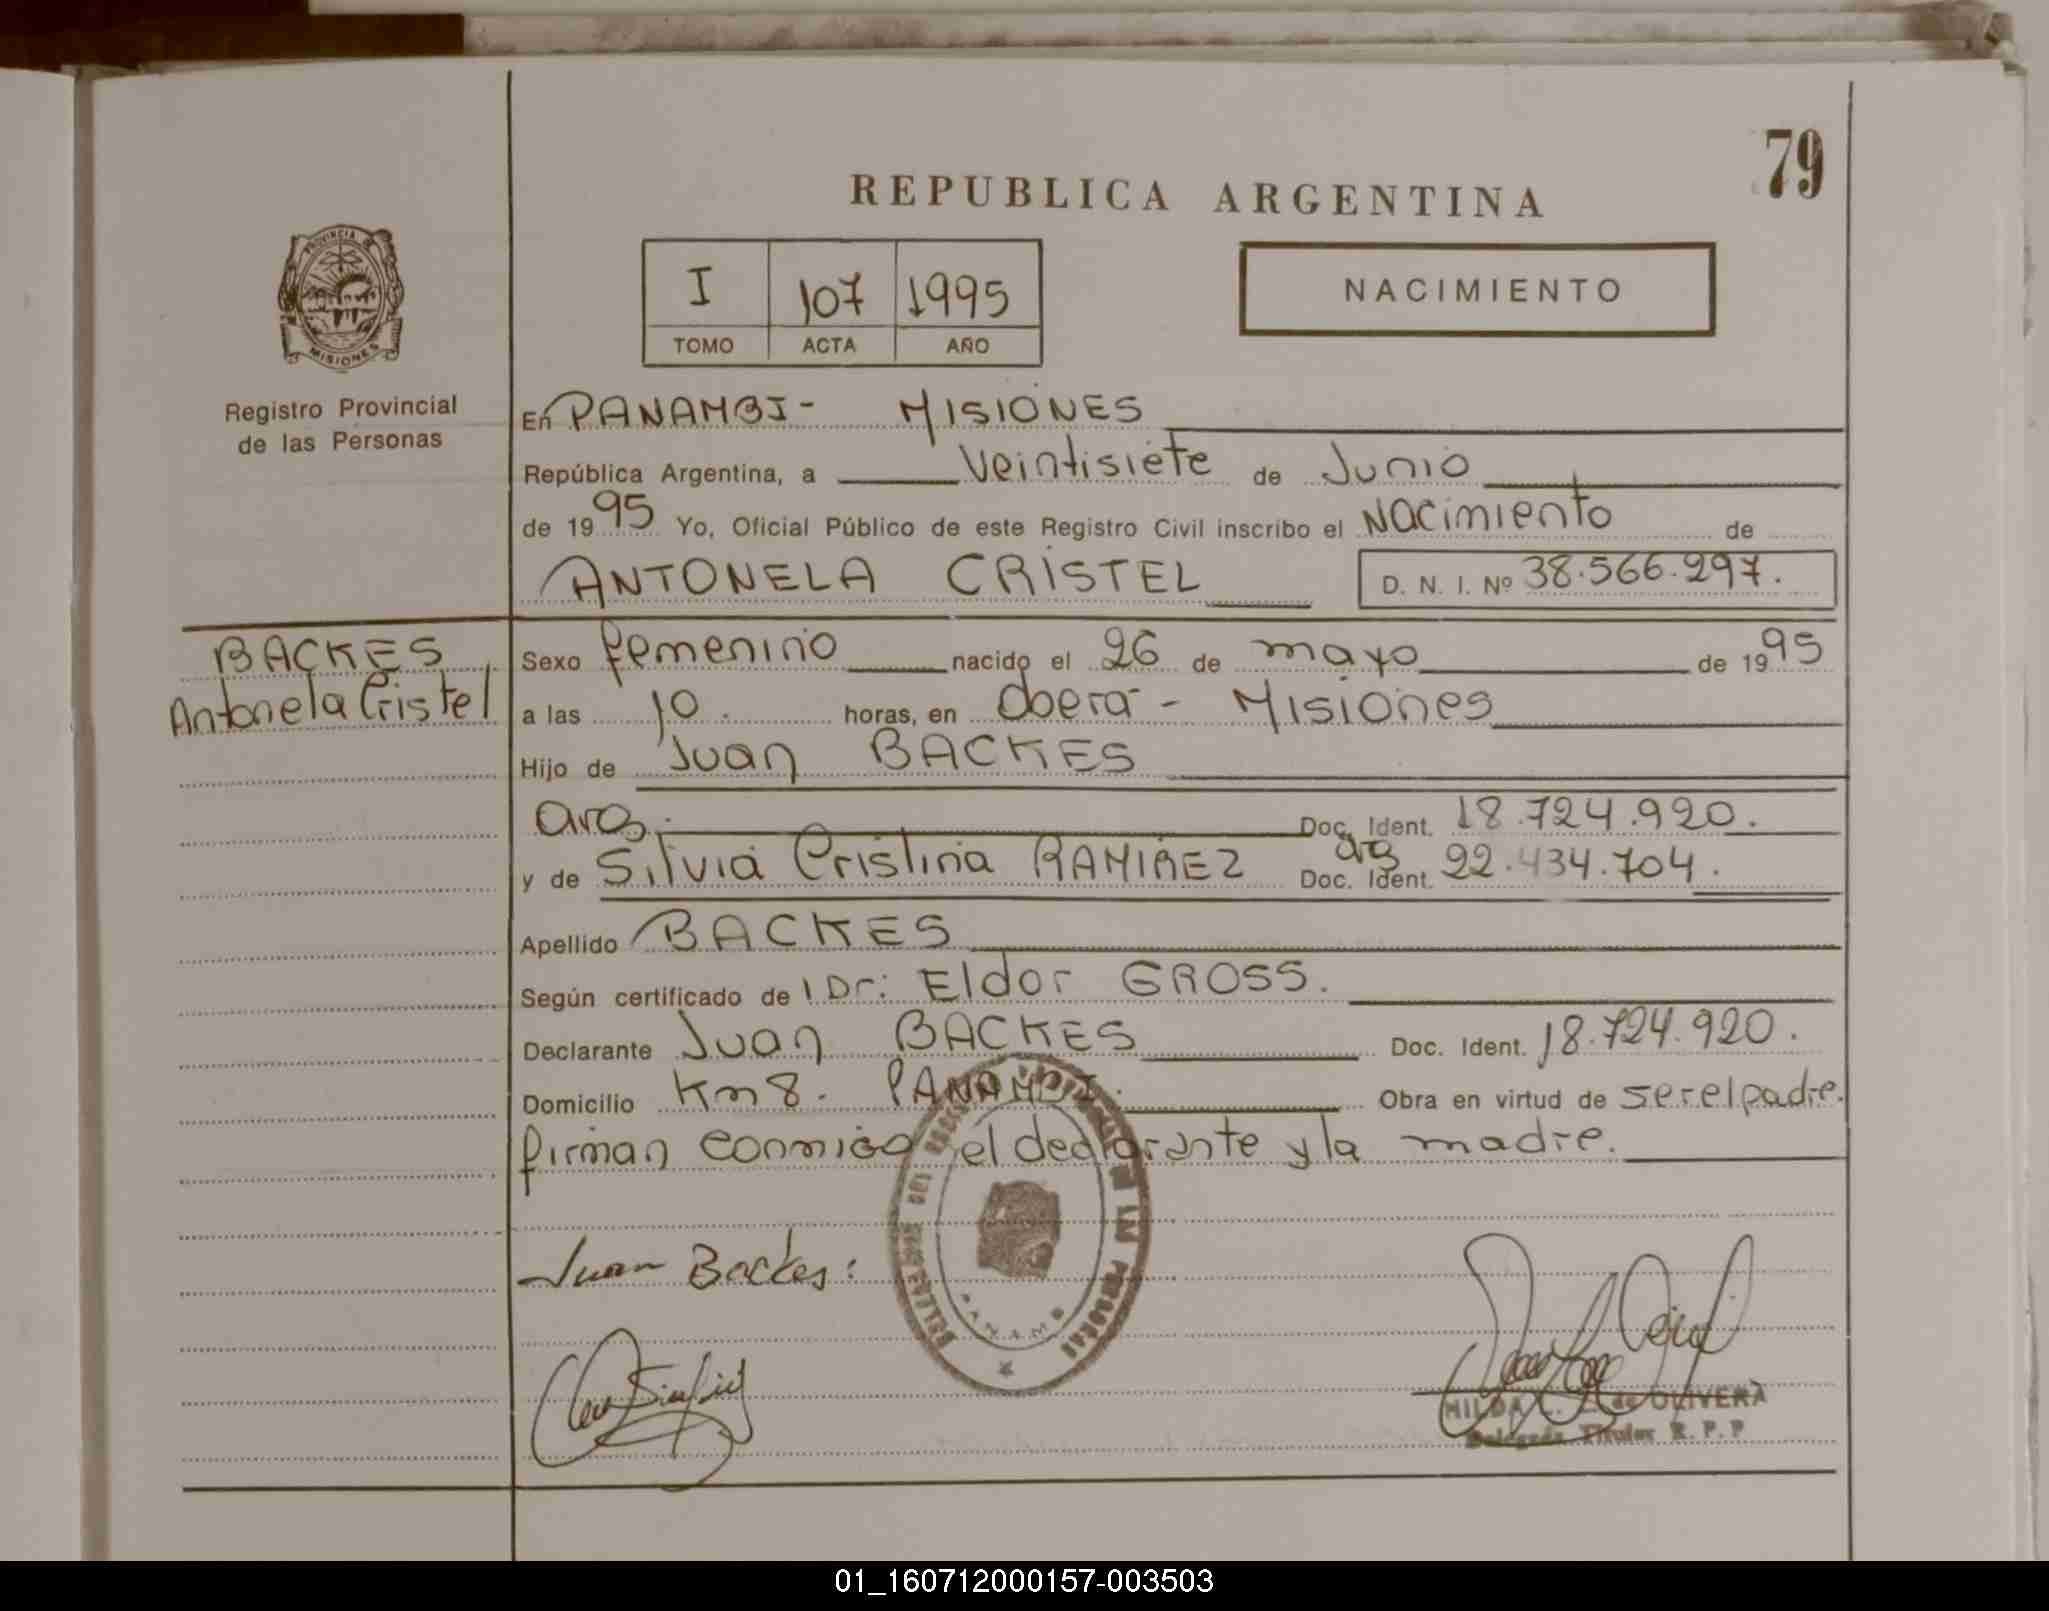 79
REPUBLICA ARGENTINA
PROVINCIA DE
MISIONES
Registro Provincial
de las Personas
I 107 1995
TOMO ACTA AÑO
NACIMIENTO
En PANAMBI - MISIONES
República Argentina, a Veintisiete de Junio
de 1995 Yo, Oficial Público de este Registro Civil inscribo el Nacimiento de
ANTONELA CRISTEL D. N. I. Nº 38.566.297.
BACKES
Antonela Cristel
Sexo femenino nacido el 26 de mayo de 1995
a las 10. horas, en Oberá - Misiones
Hijo de Juan BACKES
arg. Doc. Ident. 18.724.920.
y de Silvia Cristina RAMIREZ arg Doc. Ident. 22.434.704.
Apellido BACKES
Según certificado de l Dr: Eldor GROSS.
Declarante Juan BACKES Doc. Ident. 18.724.920.
Domicilio Km 8. PANAMBI. Obra en virtud de ser el padre.
firman conmigo el declarante y la madre.
Juan Backes:
HILDA de OLIVERA
Delegada Titular R. P. P
01_160712000157-003503